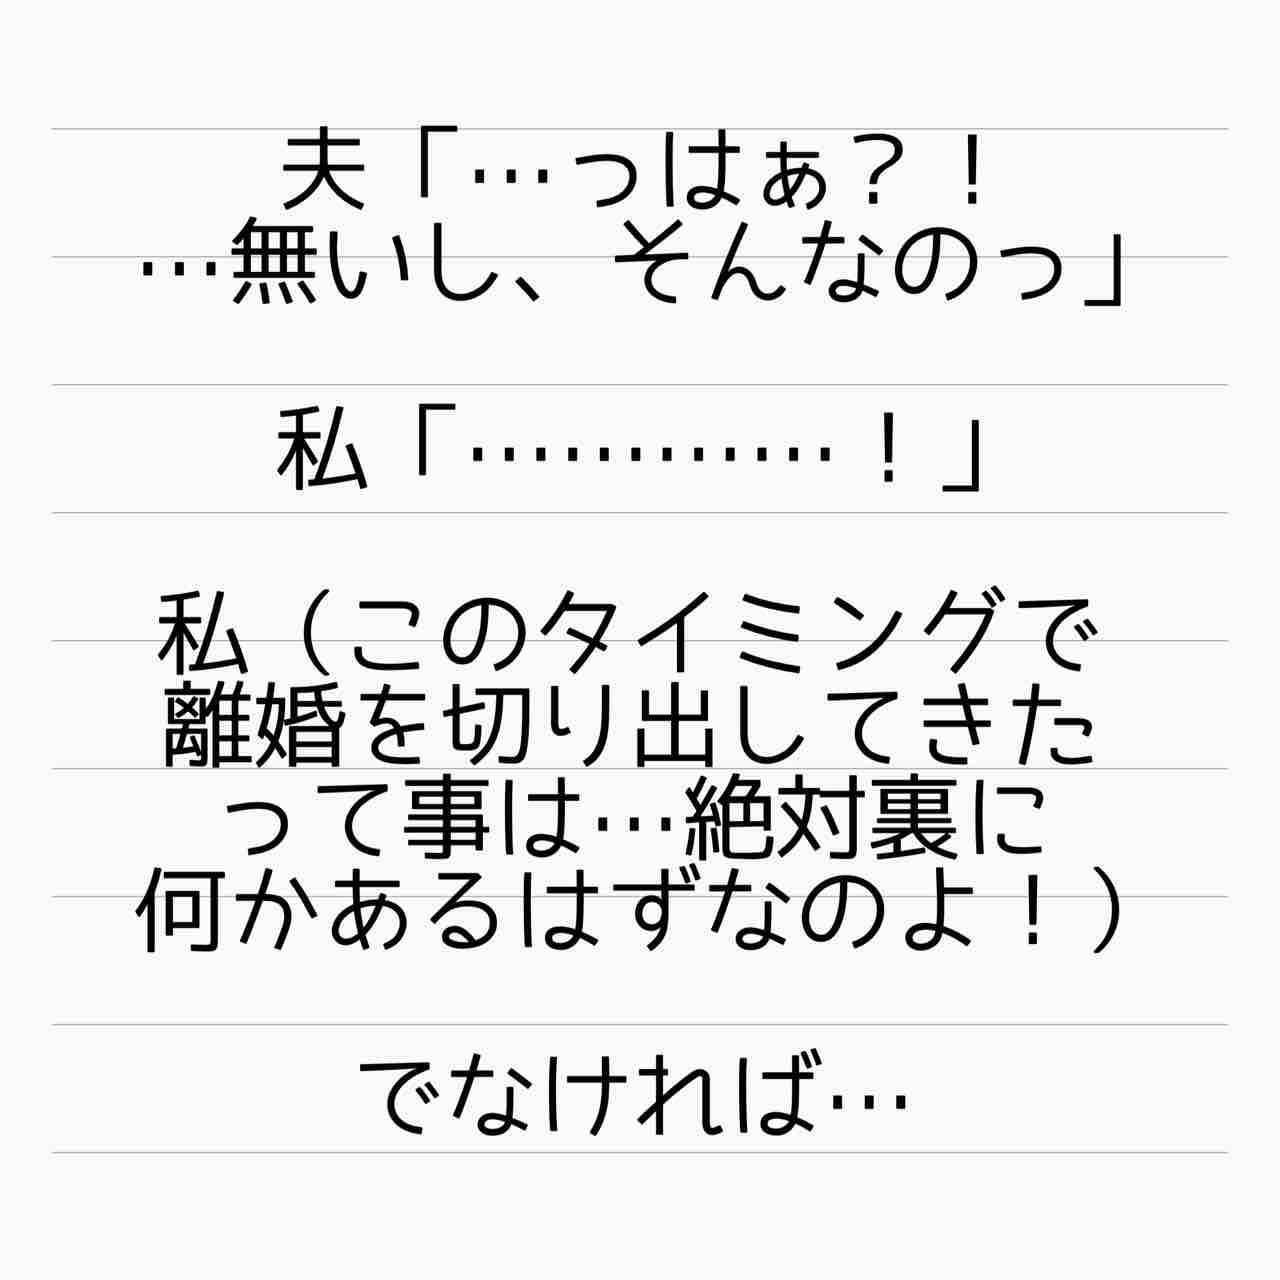 夫「…っはぁ？！
…無いし、そんなのっ」
私「…………！」
私（このタイミングで
離婚を切り出してきた
って事は…絶対裏に
何かあるはずなのよ！）
でなければ…